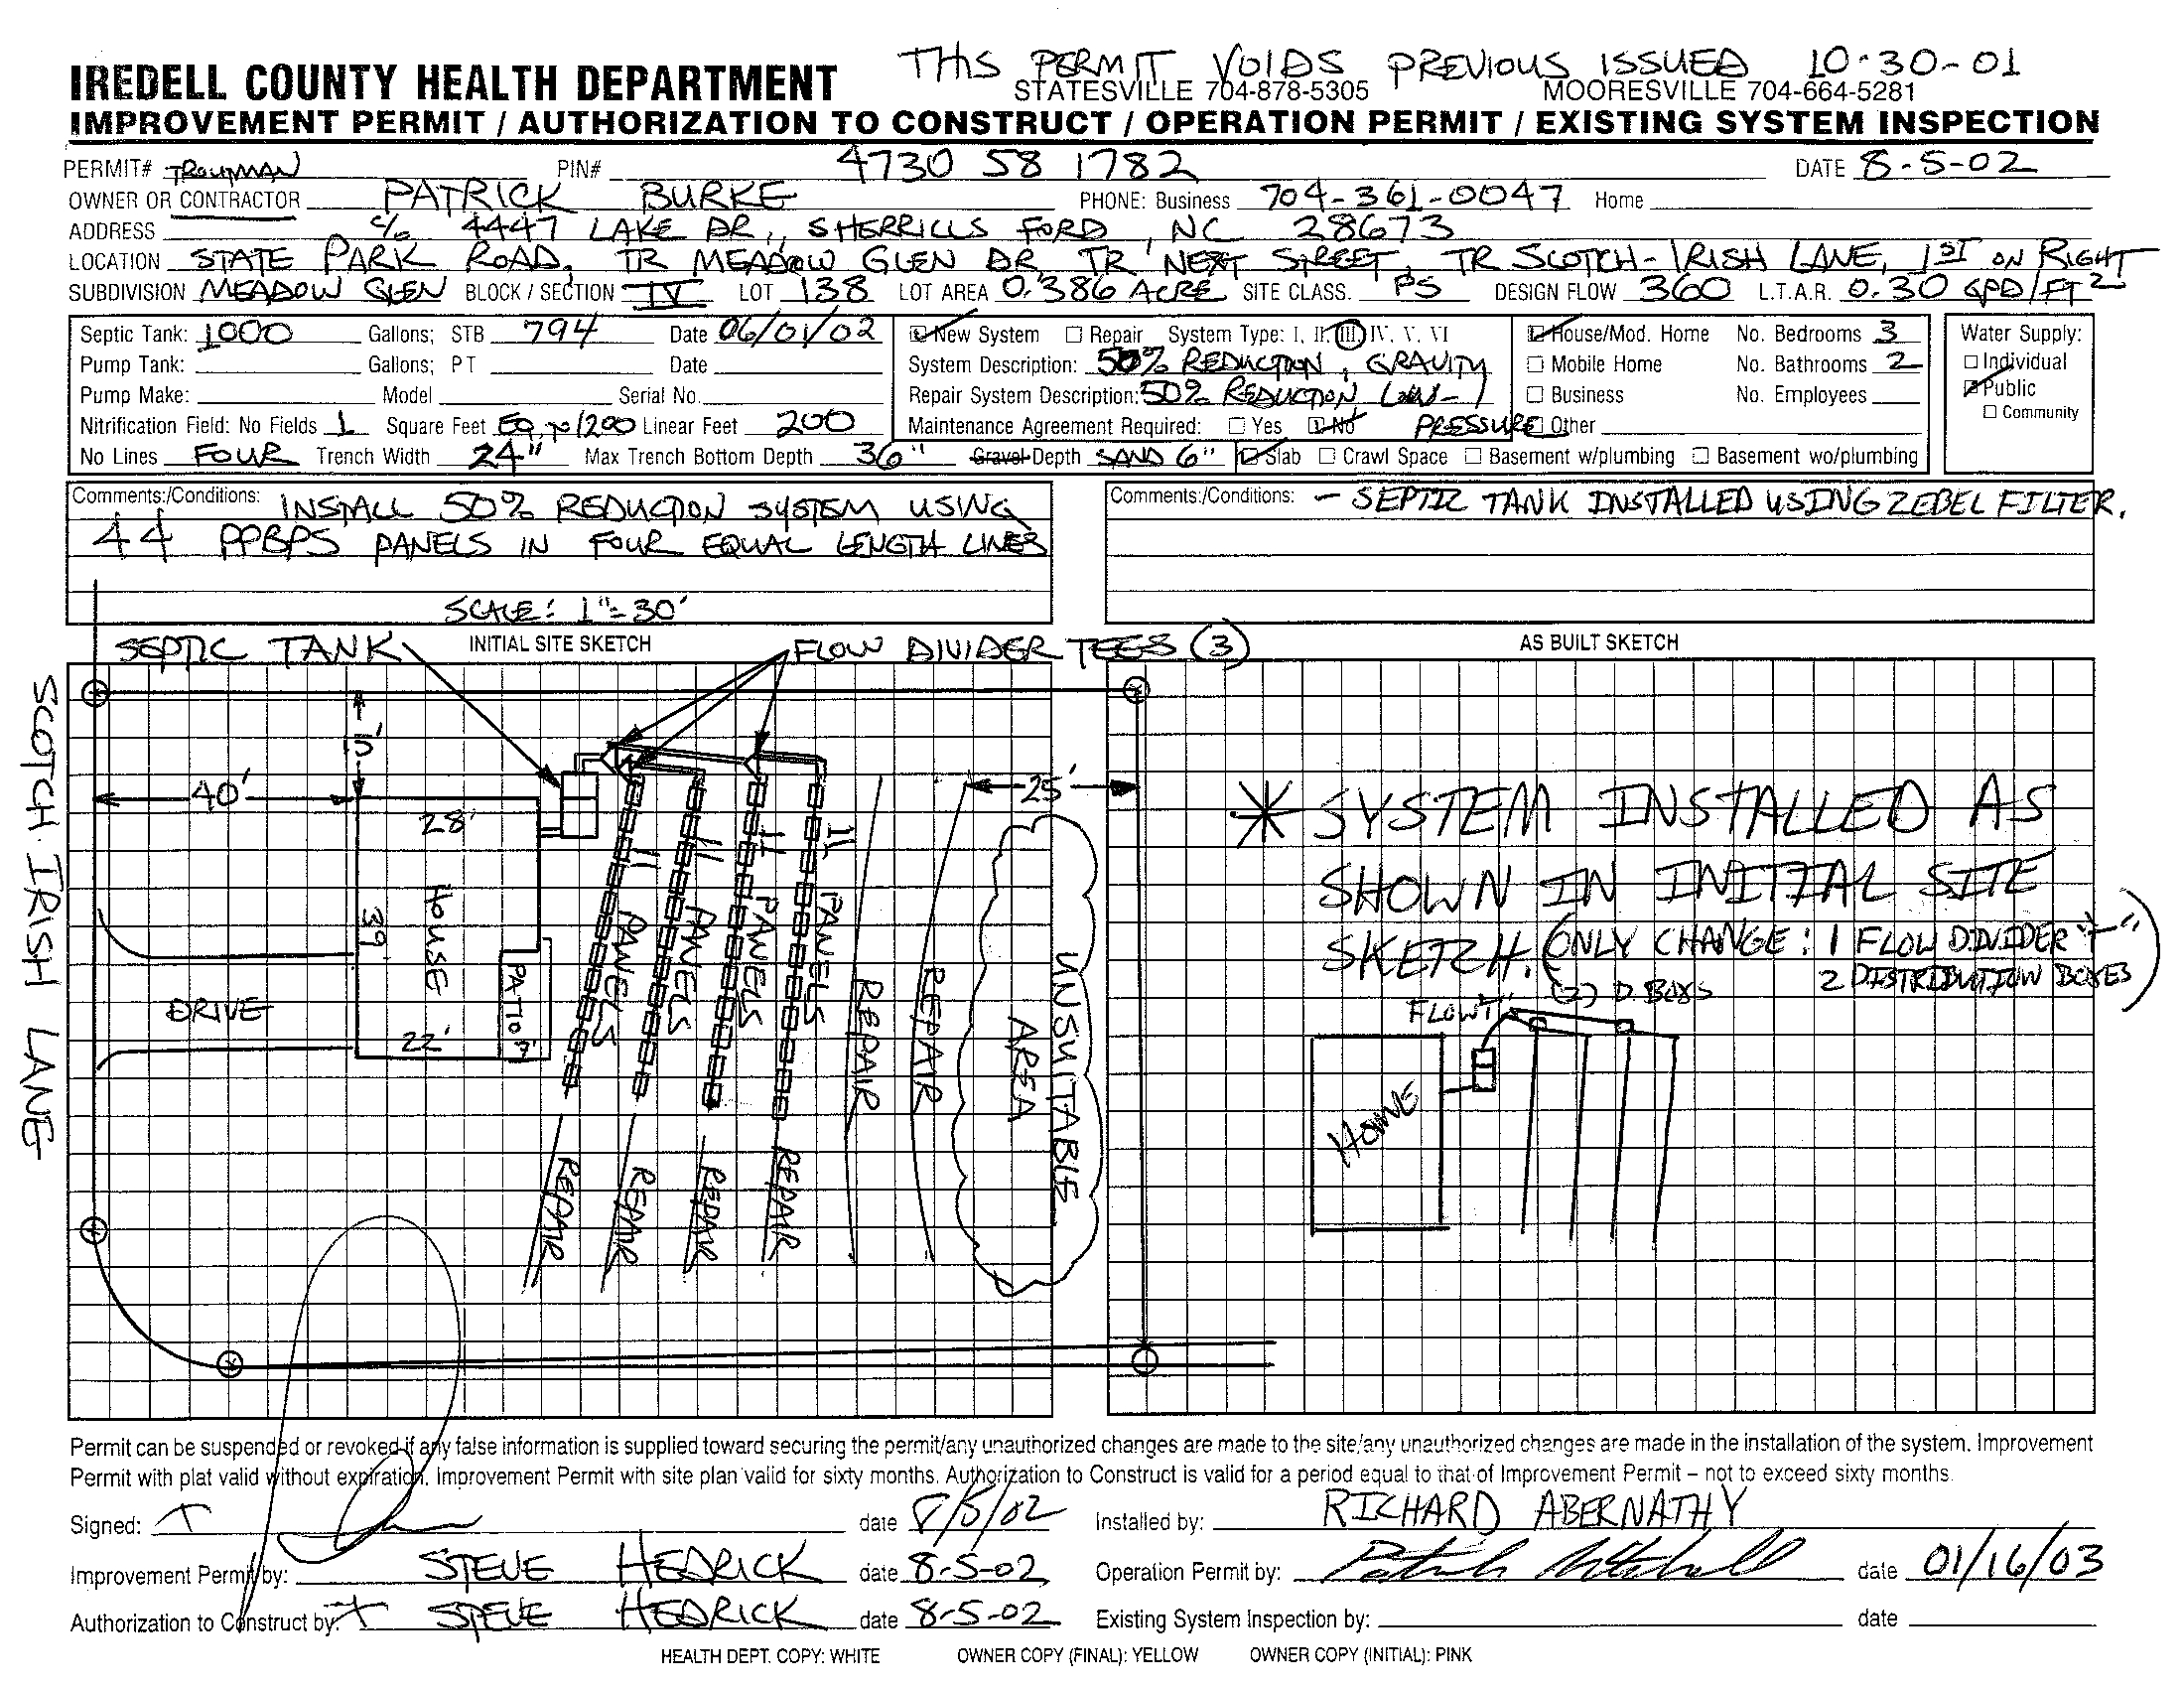 THIS PERMIT VOIDS PREVIOUS ISSUED 10-30-01
IREDELL COUNTY HEALTH DEPARTMENT STATESVILLE 704-878-5305 MOORESVILLE 704-664-5281
IMPROVEMENT PERMIT / AUTHORIZATION TO CONSTRUCT / OPERATION PERMIT / EXISTING SYSTEM INSPECTION
PERMIT# TROUTMAN PIN# 4730 58 1782 DATE 8-5-02
OWNER OR CONTRACTOR PATRICK BURKE PHONE: Business 704-361-0047 Home
ADDRESS c/o 4447 LAKE DR., SHERRILLS FORD, NC 28673
LOCATION STATE PARK ROAD, TR MEADOW GLEN DR, TR NEXT STREET, TR SCOTCH-IRISH LANE, 1ST ON RIGHT
SUBDIVISION MEADOW GLEN BLOCK / SECTION IV LOT 138 LOT AREA 0.386 ACRE SITE CLASS. PS DESIGN FLOW 360 L.T.A.R. 0.30 GPD/FT2
Septic Tank: 1000 Gallons; STB 794 Date 06/01/02 New System Repair System Type: I, II, III, IV, V, VI House/Mod. Home No. Bedrooms 3 Water Supply:
Pump Tank: Gallons; PT Date System Description: 50% REDUCTION, GRAVITY Mobile Home No. Bathrooms 2 Individual
Pump Make: Model Serial No. Repair System Description: 50% REDUCTION LOW- Business No. Employees Public
Nitrification Field: No Fields 1 Square Feet EQ. TO 1200 Linear Feet 200 Maintenance Agreement Required: Yes No PRESSURE Other Community
No Lines FOUR Trench Width 24" Max Trench Bottom Depth 36" Gravel Depth SAND 6" Slab Crawl Space Basement w/plumbing Basement wo/plumbing
Comments:/Conditions: INSTALL 50% REDUCTION SYSTEM USING
44 PPBPS PANELS IN FOUR EQUAL LENGTH LINES
SCALE: 1"=30'
Comments:/Conditions: - SEPTIC TANK INSTALLED USING ZEBEL FILTER.
SEPTIC TANK INITIAL SITE SKETCH FLOW DIVIDER TEES (3)
AS BUILT SKETCH
SCOTCH IRISH LANE
15'
40'
25'
28'
HOUSE
39'
22'
PATIO
7'
DRIVE
11 PANELS
11 PANELS
11 PANELS
11 PANELS
REPAIR
REPAIR
REPAIR
REPAIR
REPAIR
REPAIR
UNSUITABLE
AREA
* SYSTEM INSTALLED AS
SHOWN IN INITIAL SITE
SKETCH. (ONLY CHANGE: 1 FLOW DIVIDER "T"
2 DISTRIBUTION BOXES)
FLOW T (2) D. BOXS
HOME
Permit can be suspended or revoked if any false information is supplied toward securing the permit/any unauthorized changes are made to the site/any unauthorized changes are made in the installation of the system. Improvement
Permit with plat valid without expiration. Improvement Permit with site plan valid for sixty months. Authorization to Construct is valid for a period equal to that of Improvement Permit – not to exceed sixty months.
Signed: date 8/5/02 Installed by: RICHARD ABERNATHY
Improvement Permit by: STEVE HEDRICK date 8-5-02 Operation Permit by: date 01/16/03
Authorization to Construct by: STEVE HEDRICK date 8-5-02 Existing System Inspection by: date
HEALTH DEPT. COPY: WHITE OWNER COPY (FINAL): YELLOW OWNER COPY (INITIAL): PINK